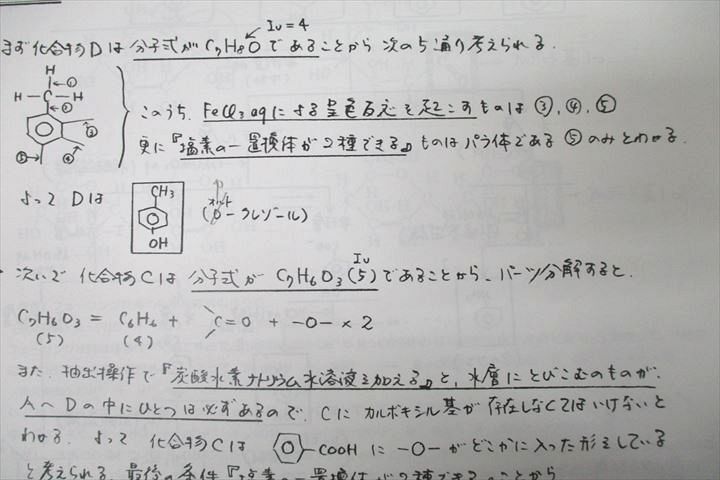 Iu = 4
まず化合物Dは分子式がC₇H₈Oであることから次の5通り考えられる.
H
H - C - H ①
①
② ③ ④ ⑤
このうち、FeCl₃aqによる呈色反応を起こすものは③,④,⑤
更に『塩素の一置換体が2種できる』ものはパラ体である⑤のみとわかる.
よってDは CH₃ OH (o-クレゾール)
Iu
次いで化合物Cは分子式がC₇H₆O₃(5)であることから、パーツ分解すると,
C₇H₆O₃ = C₆H₆ + C=O + -O- × 2
(5) (4)
また、抽出操作で『炭酸水素ナトリウム水溶液を加える』と、水層にとびこむものが、
A〜Dの中にひとつは必ずあるので、Cにカルボキシル基が存在しなくてはいけないと
わかる. よって化合物Cは -COOH に -O- がどこかに入った形をしている
と考えられる. 最後の条件『塩素の一置換体が2種できる』ことから